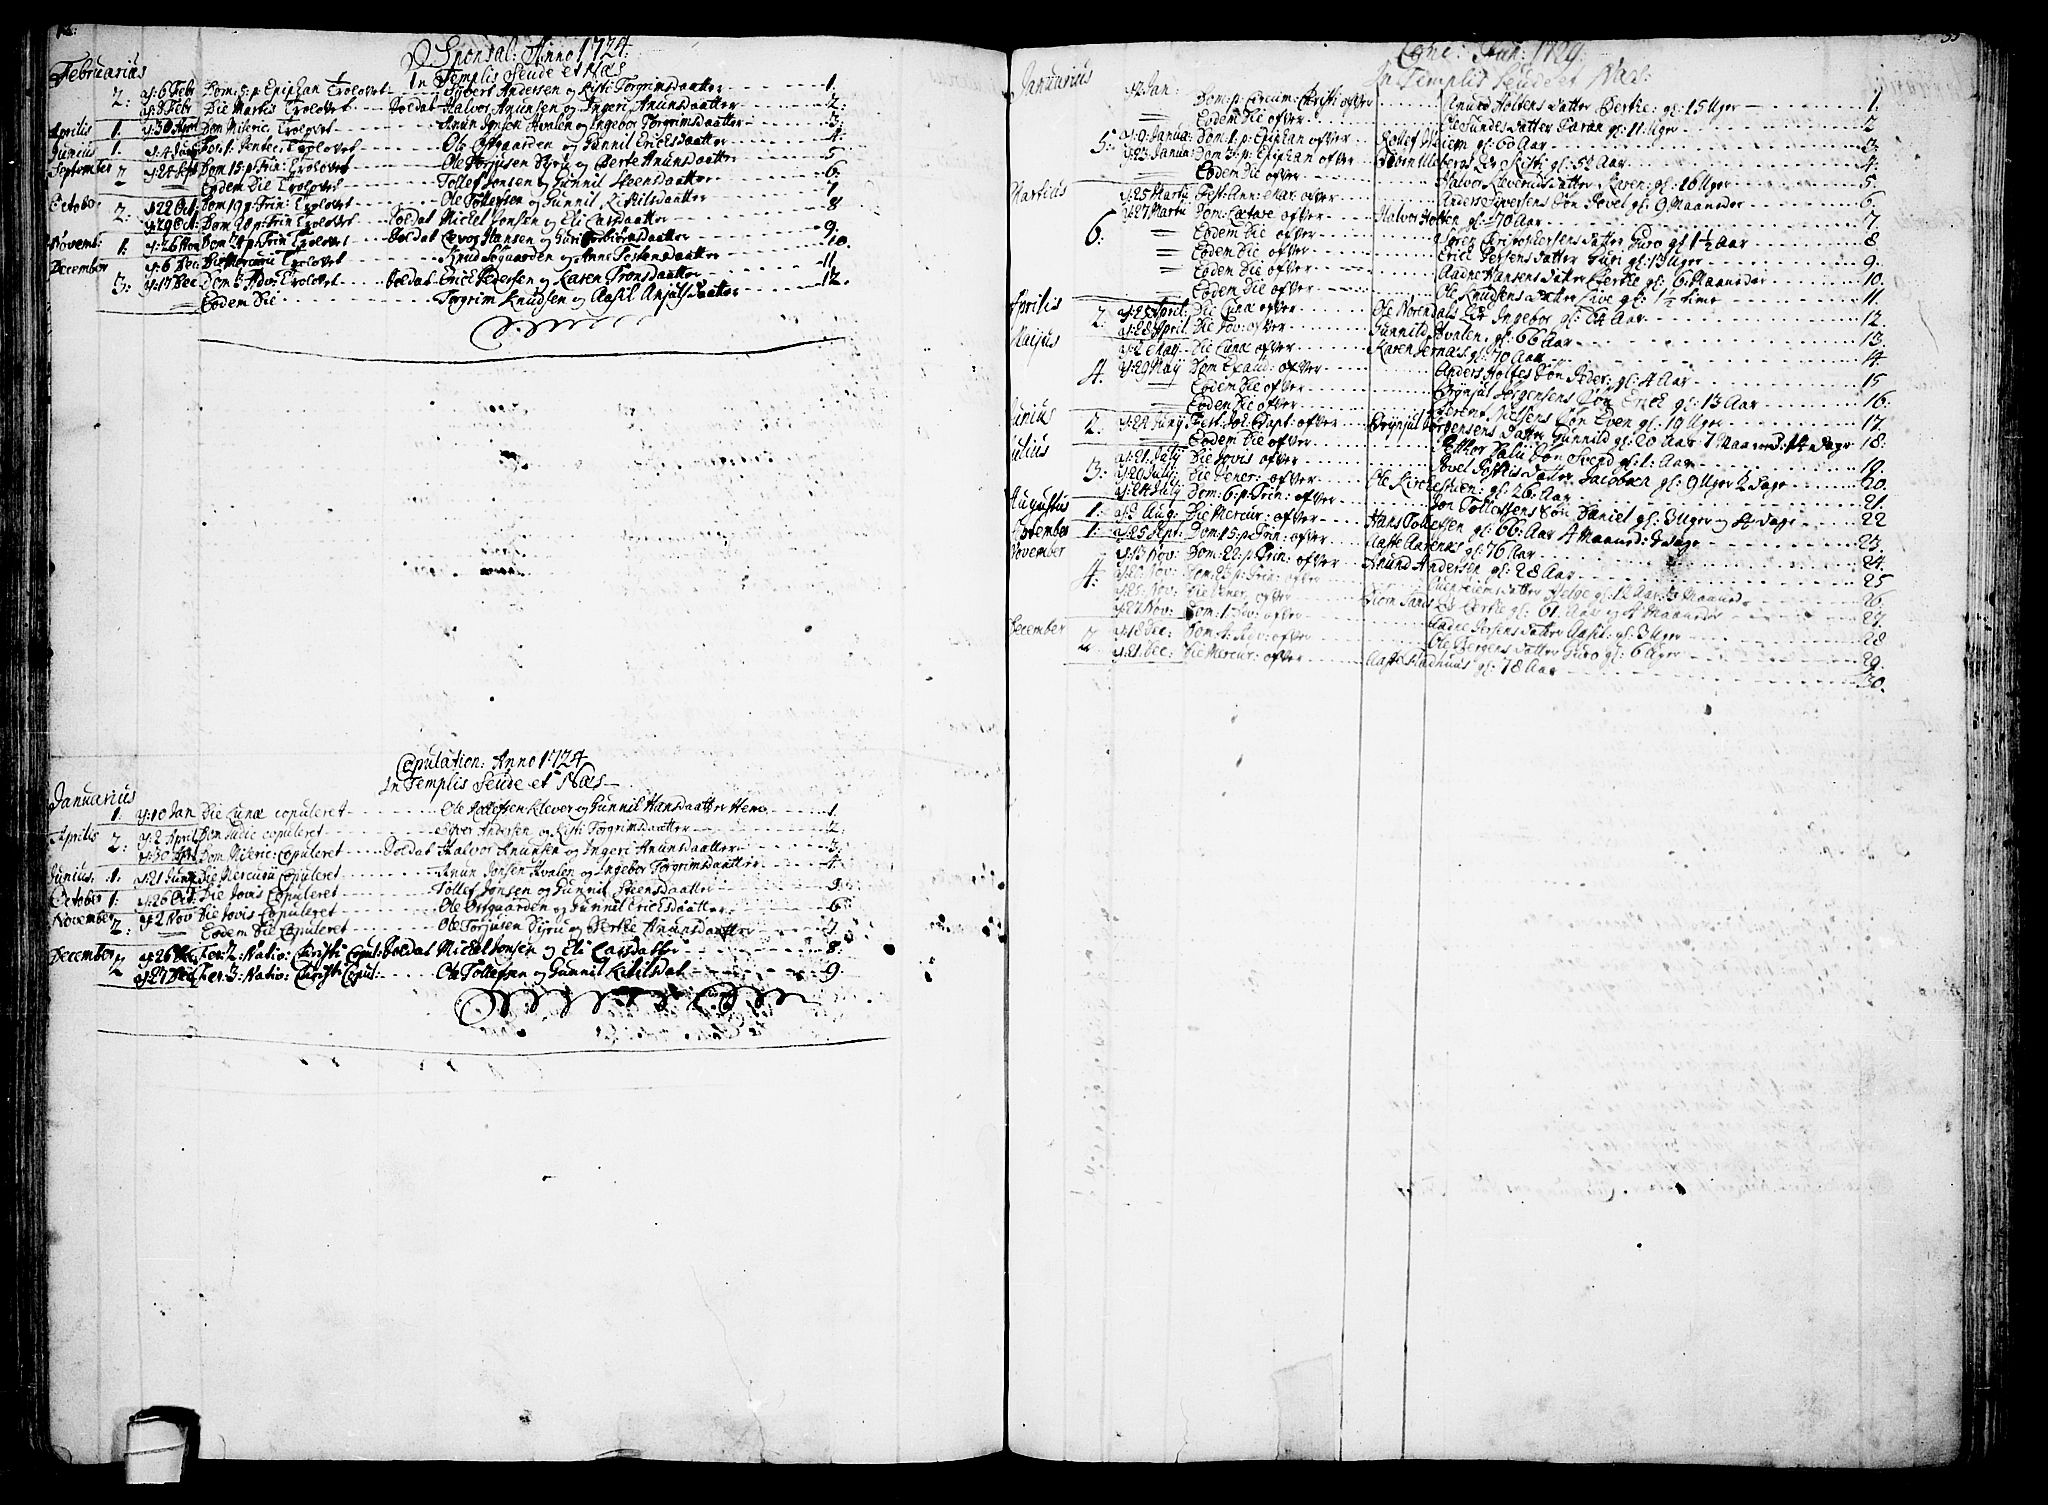 Sponsal: Anno 1724
In Templis Seude et Næs
Februarius
2: d: 6 Febr Dom: 5: p: Epiphan Trolovet Sybert Andersen og Kisti Torgrimsdaatter 1.
d: 8 Febr Die Martis Trolovet Soldat Halvor Anunsen og Ingeri Anunsdaatter 2.
Aprilis 1. d: 30 April Dom Miseric: Trolovet Anun Jonsen Hvalen og Ingebor Torgrimsdaatter 3.
Junius 1. d: 4 Jun Dom 1. Pentec: Trolovet Ole Ostgaarden og Gunnil Ericksdaatter 4.
September 2 d: 24 Sep Dom 15: p: Trin: Trolovet Ole Torjusen Syru og Berte Anunsdaatter 5.
Eodem Die Trolovet Tollef Jonsen og Gunnil Steensdaatter 6.
October 2: d: 22 Oct: Dom 19 p: Trin: Trolovet Ole Tollefsen og Gunnil Kitilsdaatter 7
d: 29 Oct: Dom 20 p: Trin Trolovet Soldat Mickel Jonsen og Eli Larsdaatter 8
Novemb: 1. d: 26 Nov Dom 24 p: Trin Trolovet Soldat Levor Hansen og Guri Torbiørnsdaatter 9.
December d: 6 Dec: Die Mercurii Trolovet Knud Søguarden og Anne Tostensdaatter 10.
3: d: 17 Dec Dom 3 Adv: Trolovet Soldat Erick Pedersen og Karen Tronsdaatter 11.
Eodem Die Torgrim Knudsen og Aasil Anjulsdaatter 12.
Copulation: Anno 1724
In Templis Seude et Næs
Januarius
1. d: 10 Jan Die Lunæ copuleret Ole Rollefsen Klever og Gunnil Hansdaatter Hem 1.
Aprilis 2: d: 2 April Dom Judic copuleret Syver Andersen og Kisti Torgrimsdaatter 2.
d: 30 Apr Dom Miseric: Copuleret Soldat Halvor Anunsen og Ingeri Anunsdaatter 3.
Junius: 1. d: 21 Juny Die Mercurii Copuleret Anun Jonsen Hvalen og Ingebor Torgrimsdaatter 4
October 1: d: 26 Oct: Die Jovis Copuleret Tollef Jonsen og Gunnil Steensdaatter 5.
November 2: d: 2 Nov Die Jovis Copuleret Ole Ostgaarden og Gunnil Ericksdaatter 6.
Eodem Die Copuleret Ole Torjusen Syru og Berthe Anunsdaatter 7
December 2 d: 26 Dec: Fer: 2: Natio: Christi Copul: Soldat Mickel Jonsen og Eli Larsdatter 8.
d: 27 Dec: Fer: 3: Natio: Christi Copul: Ole Tollefsen og Gunnil Kitilsdat 9.
55
Anno: 1724
In Templis Seude et Næs:
Januarius
d: 2 Jan: Dom: p: Circum: Christi ofver Anund Holtens Datter Berthe: gl: 15 Uger 1.
Eodem Die ofver Ole Sundes Datter Karan gl: 11 Uger 2
5: d: 9 Janua: Dom: 1: p: Epiphan ofver Rollef Hiem gl: 60 Aar 3.
d: 23 Janua: Dom: 3: p: Epiphan ofver Kisti gl: 58 Aar 4.
Eodem Die ofver Halvor Kleverus Datter Karen: gl: 16 Uger 5.
Martius d: 25 Martii Fest: Ann: Mar: ofver Anders Siversens Søn Povel gl: 9 Maaneder 6.
d: 27 Martii Dom: Lætare ofver Halvor Holten gl: 70 Aar 7
6: Eodem Die ofver Søren Christophersens Datter Guro gl: 1 ½ Aar 8
Eodem Die ofver Erick Persens Datter Guri gl: 13 Uger 9.
Eodem Die ofver Aadne Hansens Datter Berthe gl: 6 Maaneder 10.
Eodem Die ofver Ole Knudsens Datter Live gl: 1 ½ time 11.
Aprilis 2: d: 25 April: Die Lunæ ofver Ole Norendals Ingebor gl: 64 Aar 12.
d: 28 April: Die Jov: ofver Gunnild Hvalen gl: 66 Aar 13.
Maijus d: 2 May Die Lunæ ofver Karen Jernæs gl: 70 Aar 14
4. d: 29 May Dom Exaud: ofver Anders Holtes Søn Peder: gl: 4 Aar 15
Eodem Die ofver Brynjul Jørgensens Søn Erick gl: 13 Aar 16.
Eodem Die ofver Søn Even gl: 19 Uger 17.
Junius 2: d: 24 Juny Fest: Joh: Bapt: ofver Brynjul Jørgensens Datter Gunnild gl: 20 Aar 7 Maaned: 14 Dage 18.
Eodem Die ofver Søn Svend gl: 1: Aar 19.
Julius 3: d: 21 July Die Jovis ofver Povel Datter Jacobæa gl: 9 Uger 2 Dage 20.
d: 29 July Die Vener: ofver Ole Kirchestuen: gl: 26: Aar 21.
d: 24 July Dom: 6: p: Trin: ofver Jon Tollefsens Søn Daniel gl: 3 Uger og 4 Dage 22
Augustus 1: d: 3 Aug: Die Mercur: ofver Hans Tollefsen gl: 66: Aar 4 Maaned: Dage 23.
September 1: d: 25 Sept: Dom: 15: p: Trin: ofver Aaste Aarnæs gl: 76 Aar 24.
November d: 13 Nov: Dom: 22: p: Trin: ofver Anund Andersen gl: 28 Aar 25
4: d: 20 Nov: Dom: 23: p: Trin: ofver Datter Helge gl: 12 Aar: 3 Maaned 26.
d: 25: Nov: Die Vener: ofver Berthe gl: 61 Aar og 4 Maaneder 27.
d: 27 Nov: Dom: 1: Adv: ofver Aadne Persens Datter Aasil: gl: 3 Uger 28
December 2: d: 18 Dec: Dom 4: Adv: ofver Ole Bergens Datter Guro gl: 6 Uger 29.
d: 21 Dec: Die Mercur: ofver Aaste Stadhuus gl: 78 Aar 30.